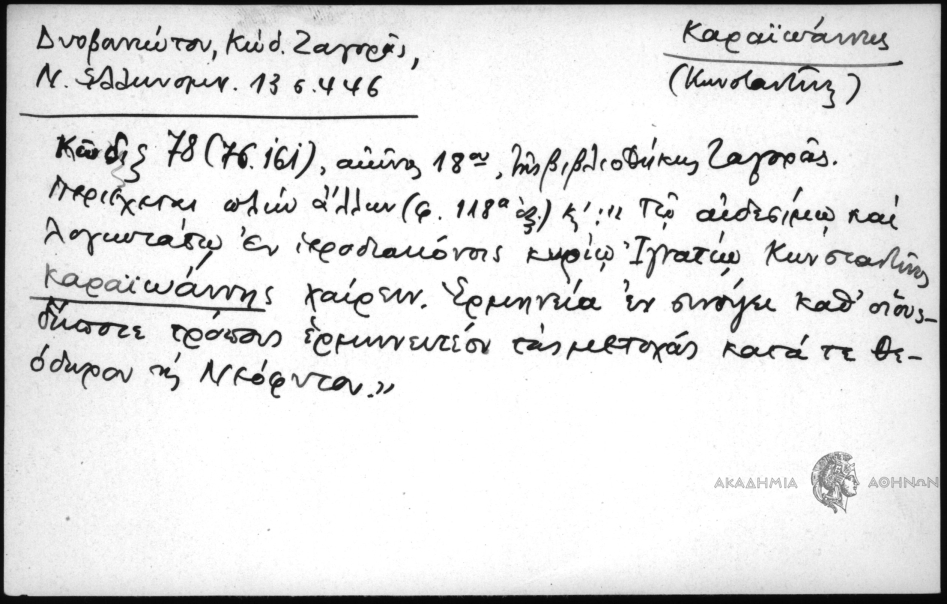 Δυοβουνιώτου, Κώδ. Ζαγορᾶς,
Ν. Ἑλληνομν. 13 σ. 446
Καραϊωάννης
(Κωνσταντῖνος)
Κῶδιξ 78 (76. 161), αἰῶνος 18ου, τῆς βιβλιοθήκης Ζαγορᾶς.
Περιέχεται πλὴν ἄλλων (φ. 118α ἑξ.) κ': "Τῷ αἰδεσίμῳ καὶ
λογιωτάτῳ ἐν ἱεροδιακόνοις κυρίῳ Ἰγνατίῳ Κωνσταντῖνος
Καραϊωάννης χαίρειν. Ἑρμηνεία ἐν συνόψει καθ' οἵους-
δήποτε τρόπους ἑρμηνευτέον τὰς μετοχάς κατά τε Θε-
όδωρον καὶ Νεόφυτον.»
ΑΚΑΔΗΜΙΑ ΑΘΗΝΩΝ